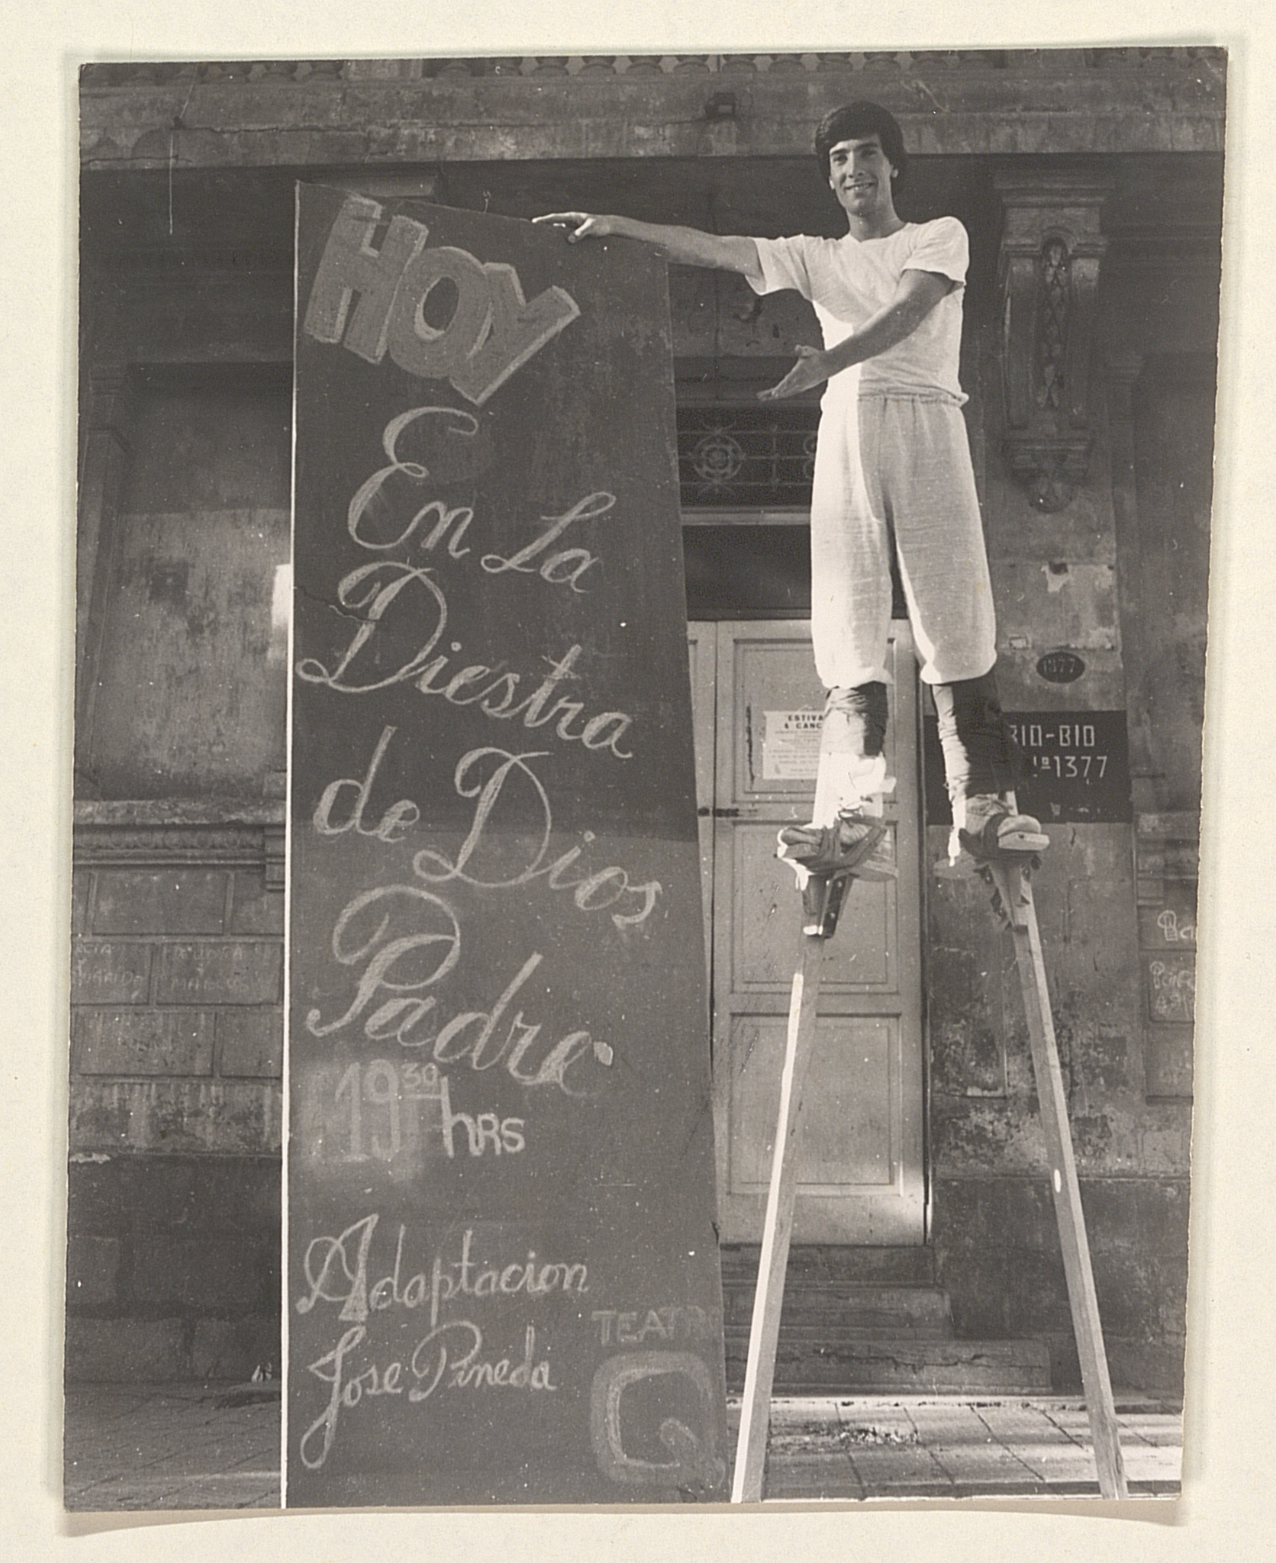 HOY
En La
Diestra
de Dios
Padre
19³⁰ hRS
Adaptacion
Jose Pineda
TEATR
Q
1377
BIO-BIO
Nº1377